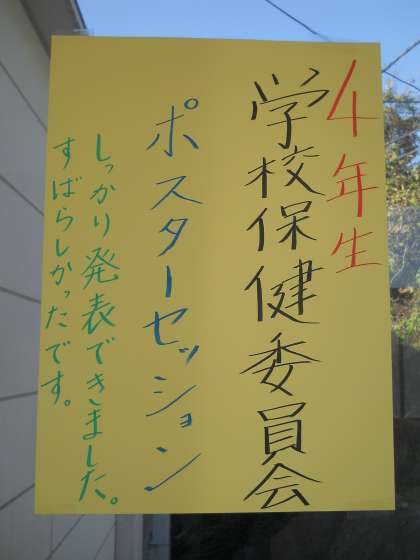 4年生
学校保健委員会
ポスターセッション
しっかり発表できました。
すばらしかったです。